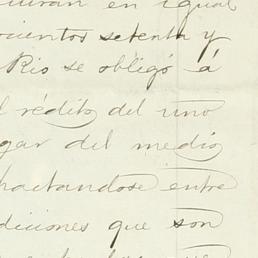 en igual
cientos setenta y
Rio se obligó á
rédito del uno
gar del medio
pactandose entre
diciones que son